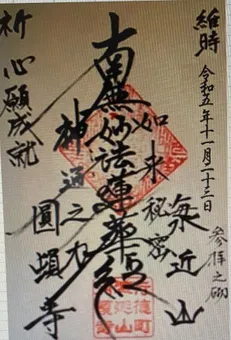 維時 令和五年十一月二十三日
参拝之砌
近山
如来秘密
南無妙法蓮華経
神通之力
圓頓寺
祈 心願成就